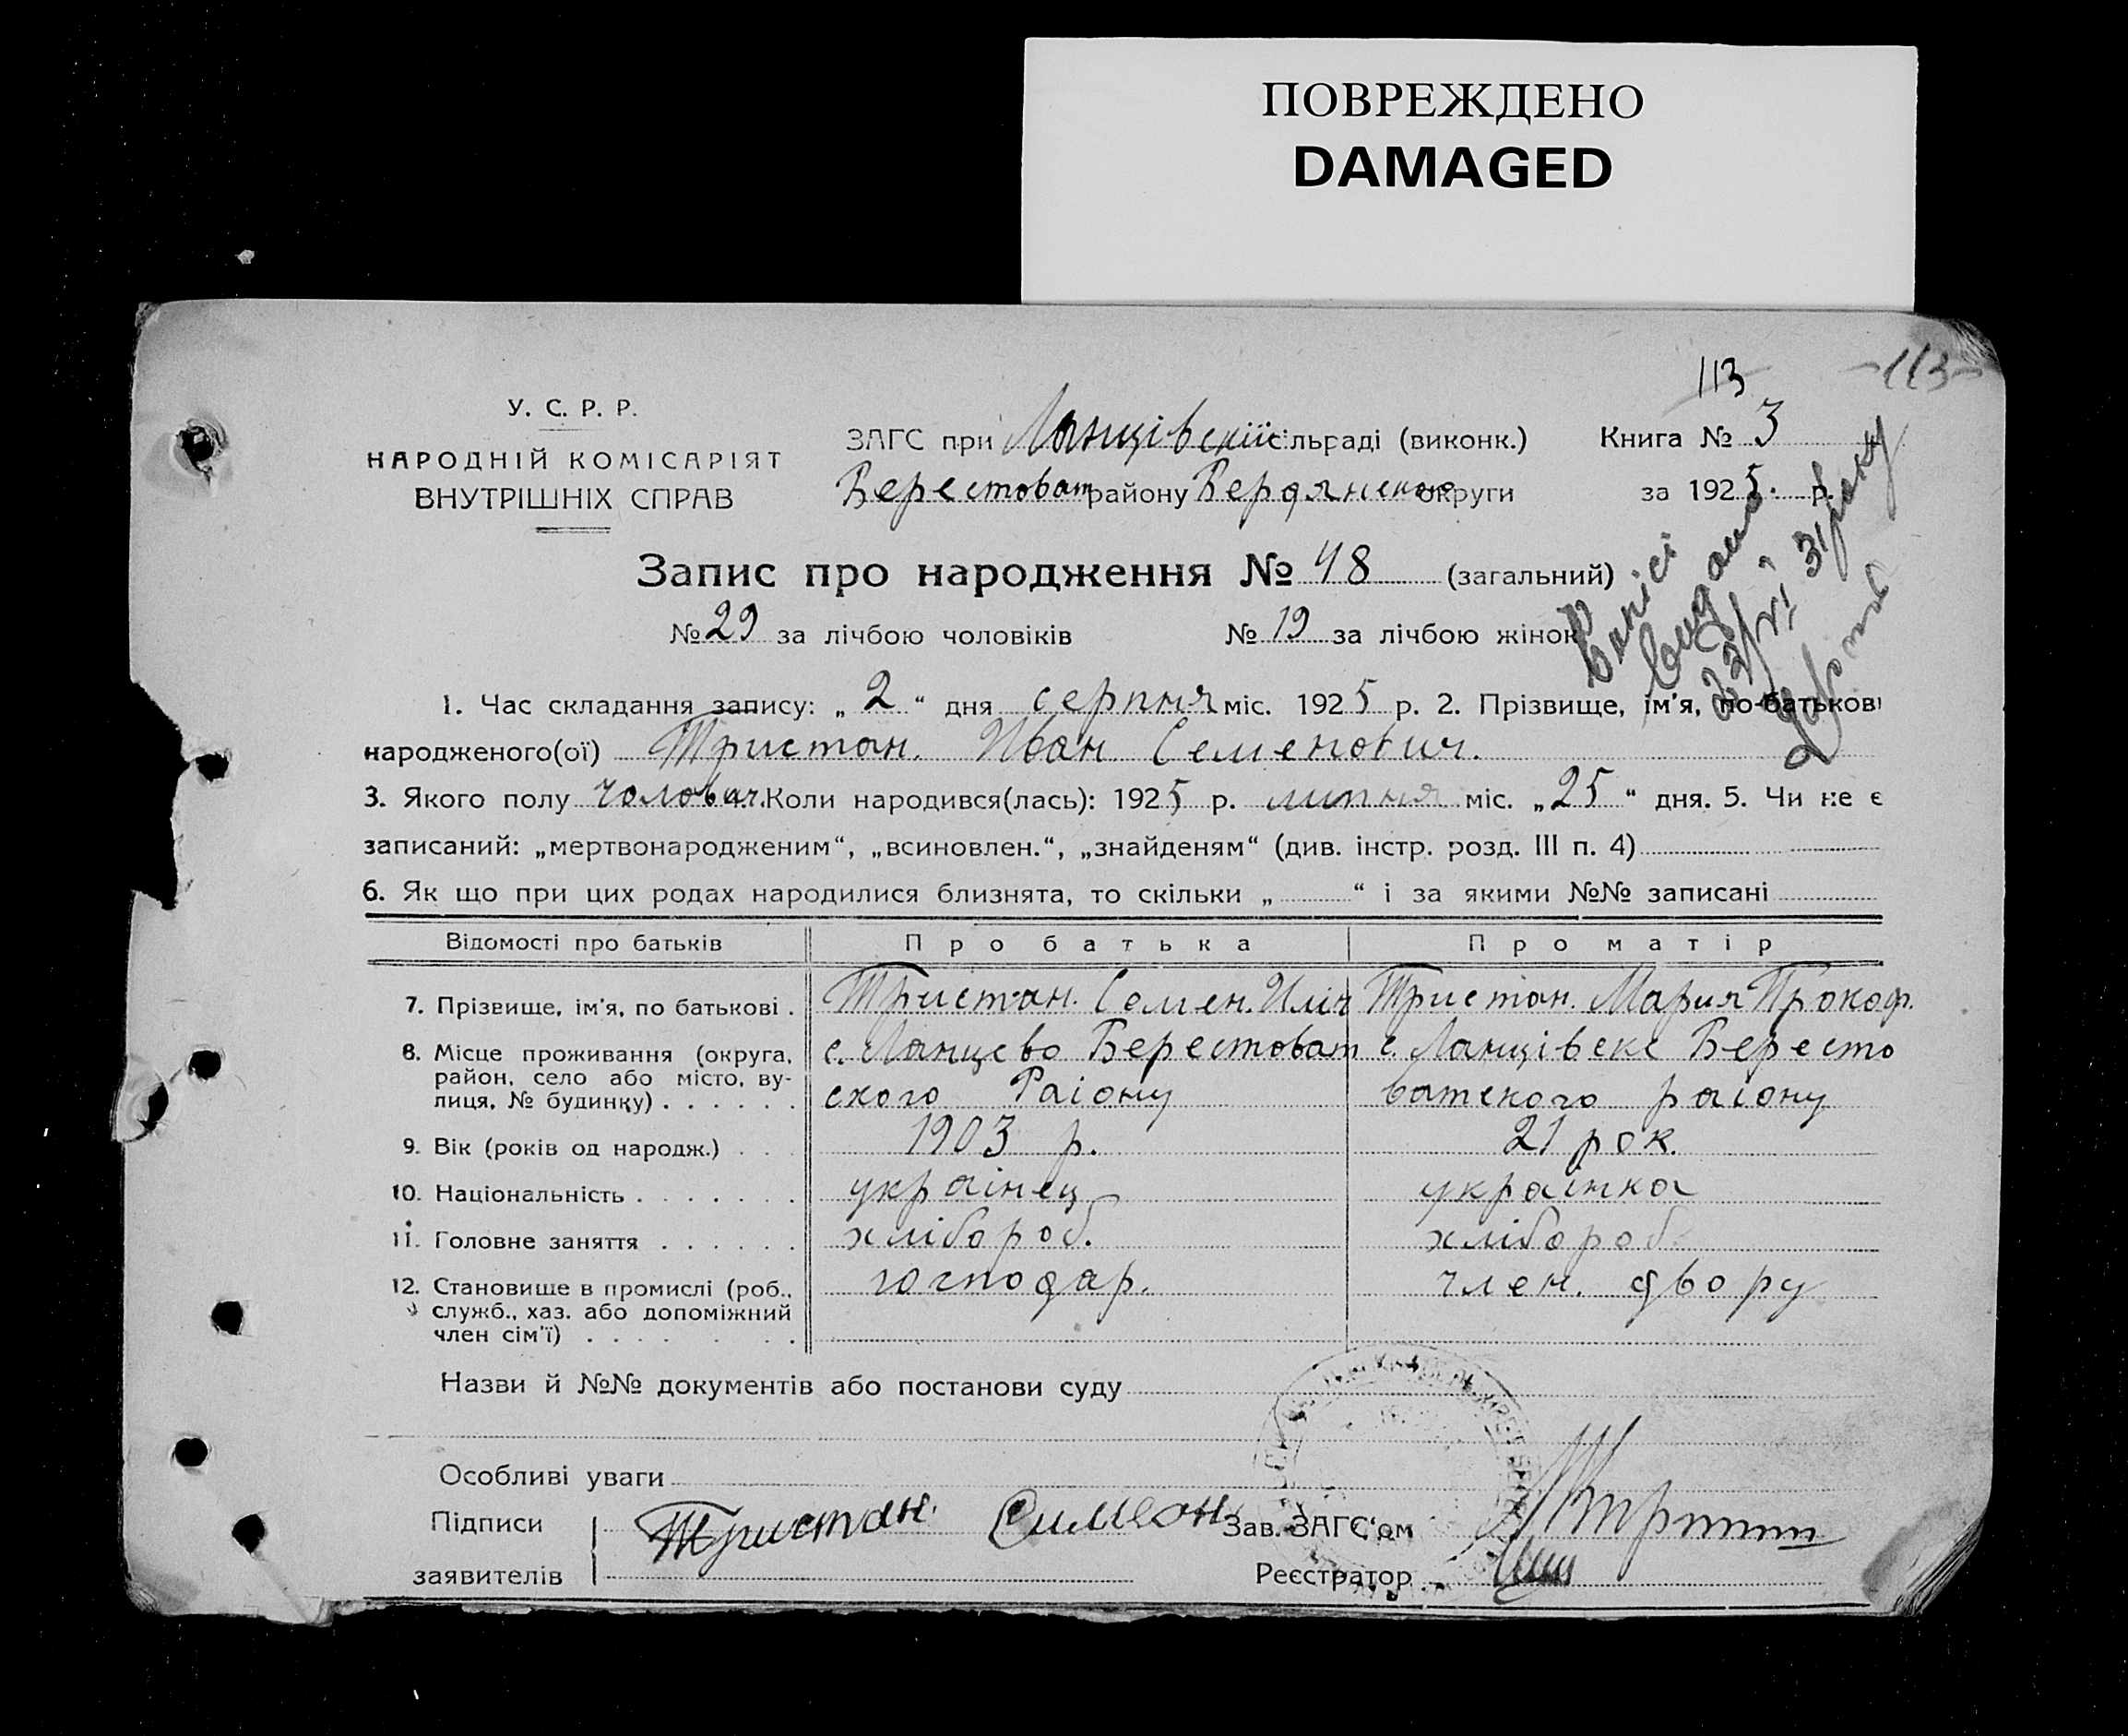 ПОВРЕЖДЕНО
DAMAGED
113
-113-
У. С. Р. Р.
НАРОДНІЙ КОМІСАРІЯТ
ВНУТРІШНІХ СПРАВ
ЗАГС при Ланцівскій сільраді (виконк.) Книга № 3
Берестоват району Бердянского округи за 1925. р.
Запис про народження № 48 (загальний)
№ 29 за лічбою чоловіків № 19 за лічбою жінок
Виписі
видано
31 року
1. Час складання запису: „2“ дня серпня міс. 1925 р. 2. Прізвище, ім'я, по-батькові
народженого(ої) Тристан. Иван Семенович.
3. Якого полу чоловіч. Коли народився(лась): 1925 р. липня міс. „25“ дня. 5. Чи не є
записаний: „мертвонародженим“, „всиновлен.“, „знайденям“ (див. інстр. розд. III п. 4)
6. Як що при цих родах народилися близнята, то скільки „ “ і за якими №№ записані
Відомості про батьків Про батька Про матір
7. Прізвище, ім'я, по батькові . Тристан. Семен. Иліч Тристан. Мария Прокоф.
8. Місце проживання (округа, с. Ланцево Берестоват с. Ланцівске Бересто
район, село або місто, ву-
лиця, № будинку) . . . . . . ского Раіону ватского раіону
9. Вік (років од народж.) . . . 1903 р. 21 рок.
10. Національність . . . . . . . украінец украінка
11. Головне заняття . . . . . . хлібороб. хлібороб
12. Становище в промислі (роб., господар. член. двору
служб., хаз. або допоміжний
член сім'ї) . . . . . .
Назви й №№ документів або постанови суду
Особливі уваги
Підписи Тристан Симеон Зав. ЗАГС'ом
заявителів Реєстратор